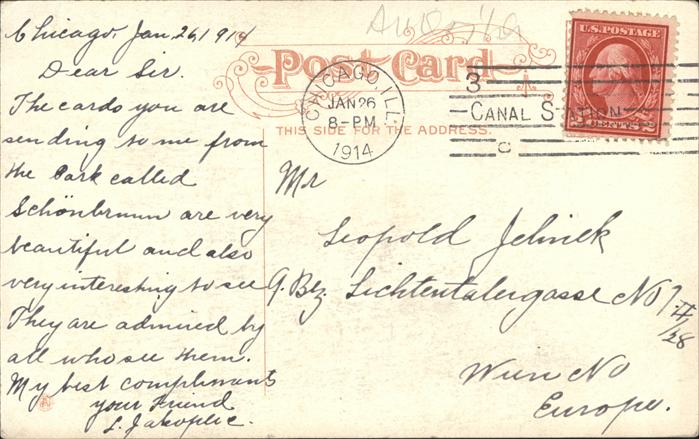 Chicago, Jan. 26, 1914
Dear Sir.
The cards you are
sending to me from
the Park called
Schönbrunn are very
beautiful and also
very interesting to see
They are admired by
all who see them.
My best compliments
your Friend
Post Card
THIS SIDE FOR THE ADDRESS.
CHICAGO, ILL.
JAN 26
8-PM
1914
3
CANAL STATION
C
U.S. POSTAGE
2 CENTS 2
Mr
Leopold Jelinek
9. Bez. Lichtentalergasse No 7
II/28
Wien
Europa.